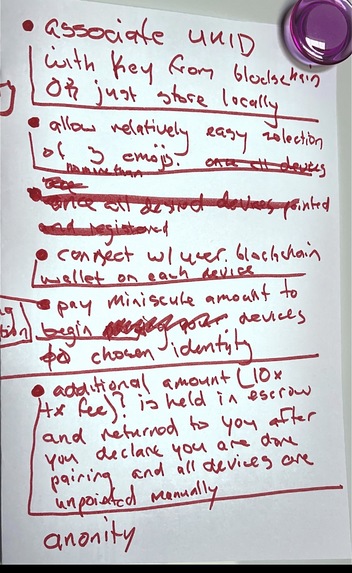 • associate UNID
with key from blockchain
OR just store locally
• allow relatively easy selection
of 3 emojis. once all devices
• once all desired devices pointed
and registered
• connect w/ user. blockchain
wallet on each device
• pay miniscule amount to
begin devices
to chosen identity
• additional amount (10x
tx fee)? is held in escrow
and returned to you after
you declare you are done
pairing and all devices are
unpointed manually
anonity